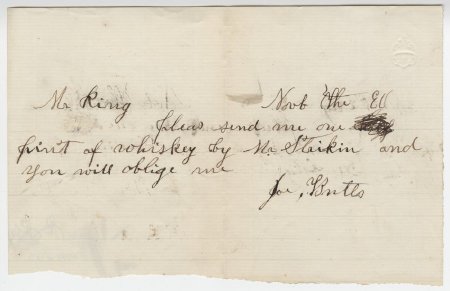 Mr King Novb the
pleas send me one
pint of whiskey by Mr and
you will oblige me
Joe